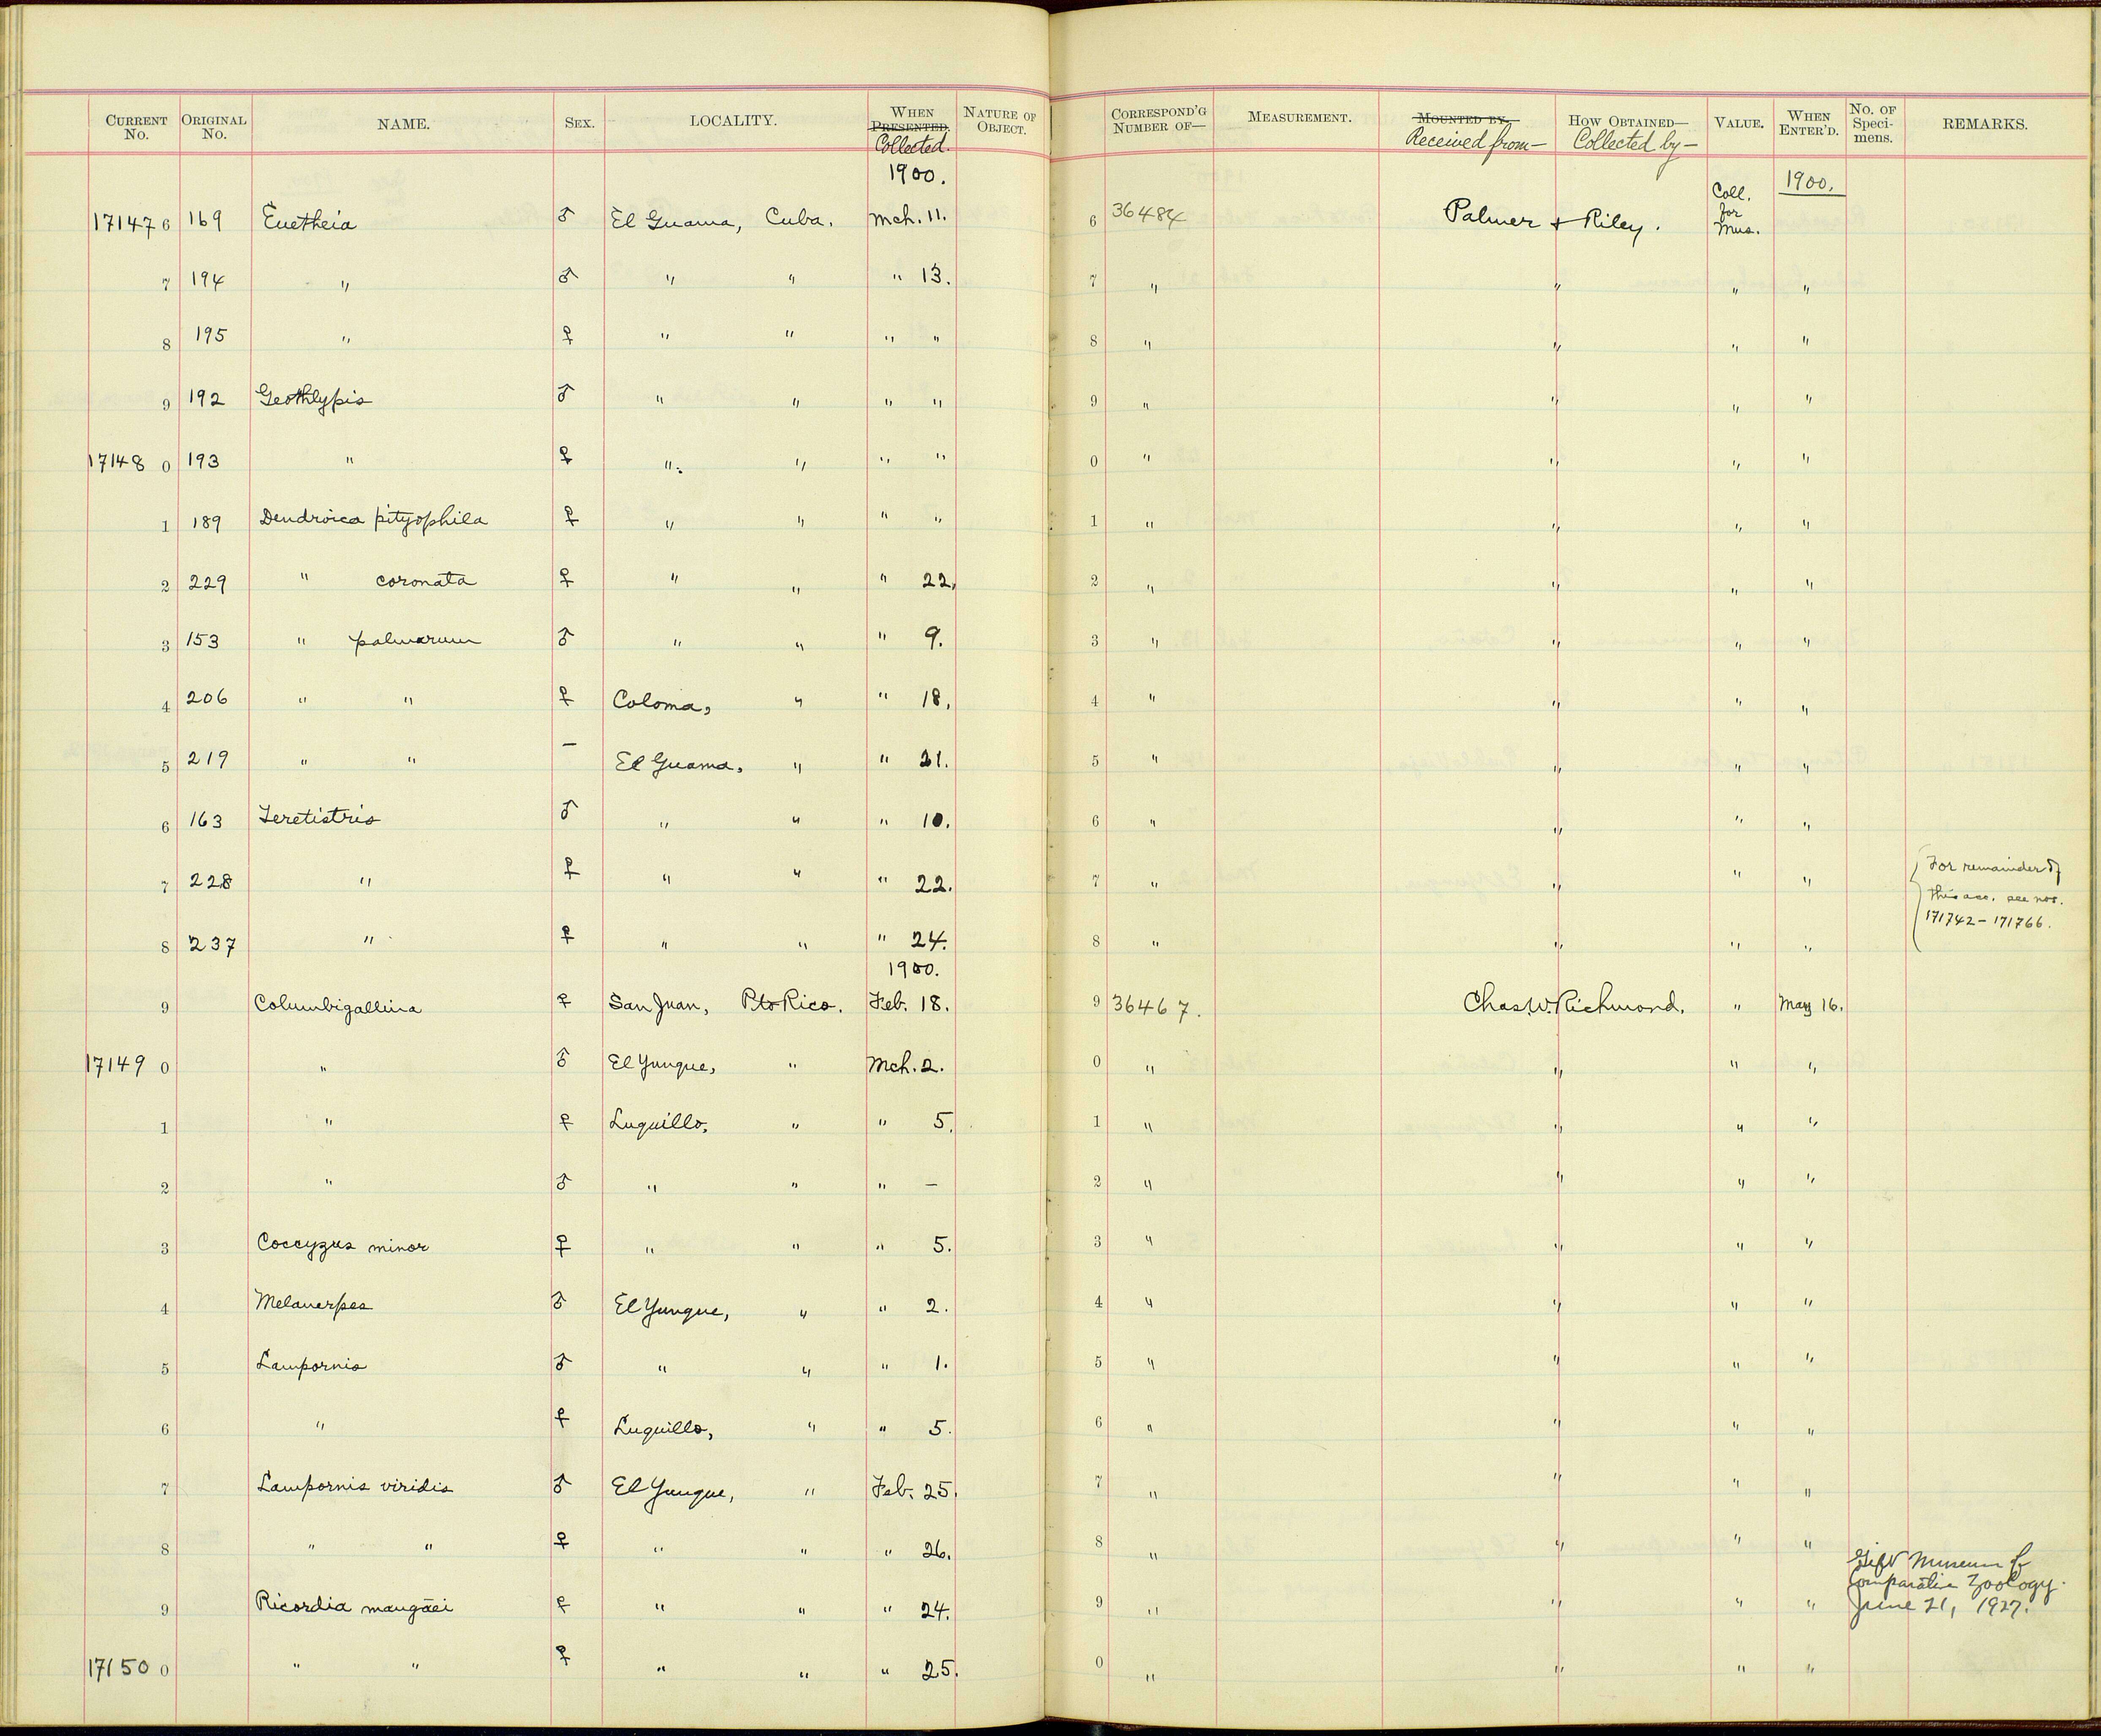 CURRENT No. ORIGINAL No. NAME. SEX. LOCALITY. WHEN PRESENTED. Collected. NATURE OF OBJECT. CORRESPOND'G NUMBER OF— MEASUREMENT. MOUNTED BY. Received from— HOW OBTAINED— Collected by— VALUE. WHEN ENTER'D. No. OF Speci-mens. REMARKS.
1900. 1900.
17147 6 169 Euetheia ♂ El Guama, Cuba. Mch. 11. 6 36484 Palmer & Riley. Coll. for Mus.
7 194 " ♂ " " " 13. 7 " " " "
8 195 " ♀ " " " " 8 " " " "
9 192 Geothlypis ♂ " " " " 9 " " " "
17148 0 193 " ♀ " " " " 0 " " " "
1 189 Dendroica pityophila ♀ " " " " 1 " " " "
2 229 " coronata ♀ " " " 22. 2 " " " "
3 153 " palmarum ♂ " " " 9. 3 " " " "
4 206 " " ♀ Coloma, " " 18. 4 " " " "
5 219 " " — El Guama, " " 21. 5 " " " "
6 163 Teretistris ♂ " " " 10. 6 " " " "
7 228 " ♀ " " " 22. 7 " " " " For remainder of
this acc. see nos.
171742 - 171766.
8 237 " ♀ " " " 24. 8 " " " "
1900.
9 Columbigallina ♀ San Juan, Pto Rico. Feb. 18. 9 36467. Chas. W. Richmond. " May 16.
17149 0 " ♂ El Yunque, " Mch. 2. 0 " " " "
1 " ♀ Luquillo, " " 5. 1 " " " "
2 " ♂ " " " — 2 " " " "
3 Coccyzus minor ♀ " " " 5. 3 " " " "
4 Melanerpes ♂ El Yunque, " " 2. 4 " " " "
5 Lampornis ♂ " " " 1. 5 " " " "
6 " ♀ Luquillo, " " 5. 6 " " " "
7 Lampornis viridis ♂ El Yunque, " Feb. 25. 7 " " " "
8 " " ♀ " " " 26. 8 " " " "
9 Ricordia maugæi ♀ " " " 24. 9 " " " " Gift Museum of
Comparative Zoology.
June 21, 1927.
17150 0 " " ♀ " " " 25. 0 " " " "